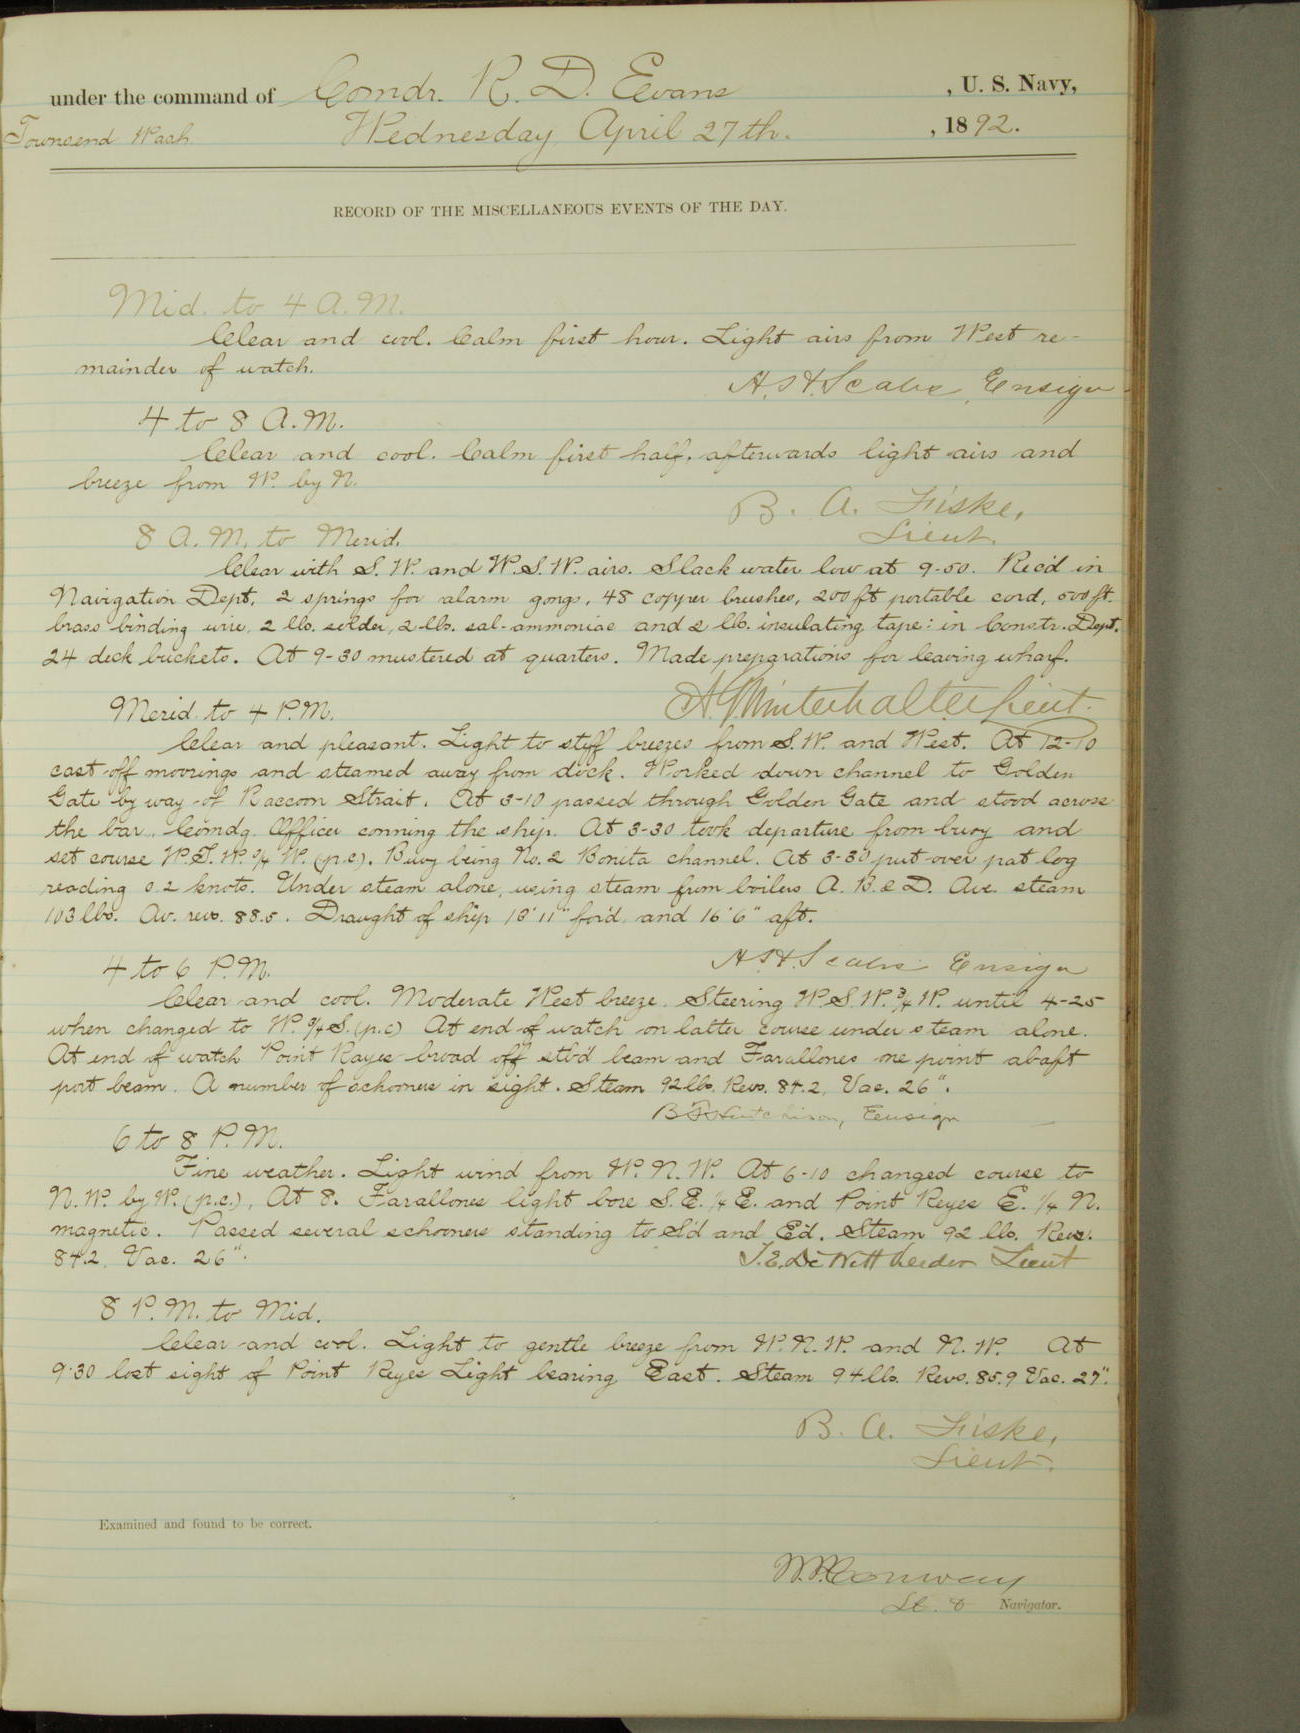 under the command of Comdr. R. D. Evans, U. S. Navy,
Townsend Wash. Wednesday April 27th., 1892.
RECORD OF THE MISCELLANEOUS EVENTS OF THE DAY.
Mid. to 4 A.M.
Clear and cool. Calm first hour. Light airs from West re-
mainder of watch.
A. H. Scales, Ensign
4 to 8 A.M.
Clear and cool. Calm first half, afterwards light airs and
breeze from W. by N.
B. A. Fiske,
Lieut.
8 A.M. to Merid.
Clear with S. W. and W.S.W. airs. Slack water low at 9-50. Rec'd in
Navigation Dept. 2 springs for alarm gongs, 48 copper brushes, 200 ft portable cord, 500 ft.
brass binding wire, 2 lbs. solder, 2 lbs. sal-ammoniac and 2 lbs. insulating tape: in Constr. Dept.
24 deck buckets. At 9-30 mustered at quarters. Made preparations for leaving wharf.
A. G. Winterhalter Lieut.
Merid. to 4 P.M.
Clear and pleasant. Light to stiff breezes from S.W. and West. At 12-10
cast off moorings and steamed away from dock. Worked down channel to Golden
Gate by way of Raccoon Strait. At 3-10 passed through Golden Gate and stood across
the bar, Comdg. Officer conning the ship. At 3-30 took departure from buoy and
set course W.S.W. 3/4 W. (p.c). Buoy being No. 2 Bonita channel. At 3-30 put over pat log
reading 0.2 knots. Under steam alone, using steam from boilers A. B. & D. Ave. steam
103 lbs. Av. revs. 88.5. Draught of ship 13' 11" for'd. and 16' 6" aft.
A. H. Scales Ensign
4 to 6 P.M.
Clear and cool. Moderate West breeze. Steering W.S.W. 3/4 W. until 4-25
when changed to W. 3/4 S. (p.c) At end of watch on latter course under steam alone.
At end of watch Point Rayes broad off stb'd beam and Farallones one point abaft
port beam. A number of schooners in sight. Steam 92 lbs. Revs. 84.2, Vac. 26".
B. F. Hutchison, Ensign
6 to 8 P.M.
Fine weather. Light wind from W.N.W. At 6-10 changed course to
N.W. by W. (p.c.), At 8. Farallones light bore S.E. 1/4 E. and Point Reyes E. 1/4 N.
magnetic. Passed several schooners standing to S'd and E'd. Steam 92 lbs. Revs.
84.2, Vac. 26".
T.E. DeWitt Veeder Lieut
8 P.M. to Mid.
Clear and cool. Light to gentle breeze from W.N.W. and N.W. At
9:30 lost sight of Point Reyes Light bearing East. Steam 94 lbs. Revs. 85.9 Vac. 27".
B. A. Fiske,
Lieut.
Examined and found to be correct.
Conway
Lt. & Navigator.